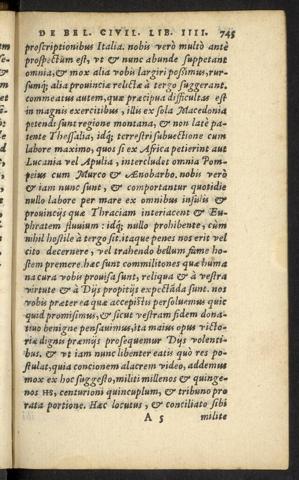 DE BEL. CIVIL. LIB. IIII. 745
proscriptionibus Italia. nobis verò multò antè
prospectum est, vt & nunc abunde suppetant
omnia, & mox alia vobis largiri possimus, rur-
sumq; alia prouincia relicta à tergo suggerant.
commeatus autem, quæ præcipua difficultas est
in magnis exercitibus, illis ex sola Macedonia
petendi sunt regione montana, & non latè pa-
tente Thessalia, idq; terrestri subuectione cum
labore maximo, quos si ex Africa petierint aut
Lucania vel Apulia, intercludet omnia Pom-
peius cum Murco & Ænobarbo. nobis verò
& iam nunc sunt, & comportantur quotidie
nullo labore per mare ex omnibus insulis &
prouincijs quæ Thraciam interiacent & Eu-
phratem fluuium: idq; nullo prohibente, cùm
nihil hostile à tergo sit. itaque penes nos erit vel
citò decernere, vel trahendo bellum fame ho-
stem premere. hæc sunt commilitones quæ huma
na cura vobis prouisa sunt, reliqua & à vestra
virtute & à Dijs propitijs expectāda sunt. nos
vobis præter ea quæ accepistis persoluemus quic
quid promisimus, & sicut vestram fidem dona-
tiuo benigne pensauimus, ita maius opus victo-
riæ dignis præmijs prosequemur Dijs volenti-
bus. & vt iam nunc libenter eatis quò res po-
stulat, quia concionem alacrem video, addemus
mox ex hoc suggesto, militi millenos & quinge-
nos HS, centurioni quincuplum, & tribuno pro
rata portione. Hæc locutus, & conciliato sibi
A 5 milite